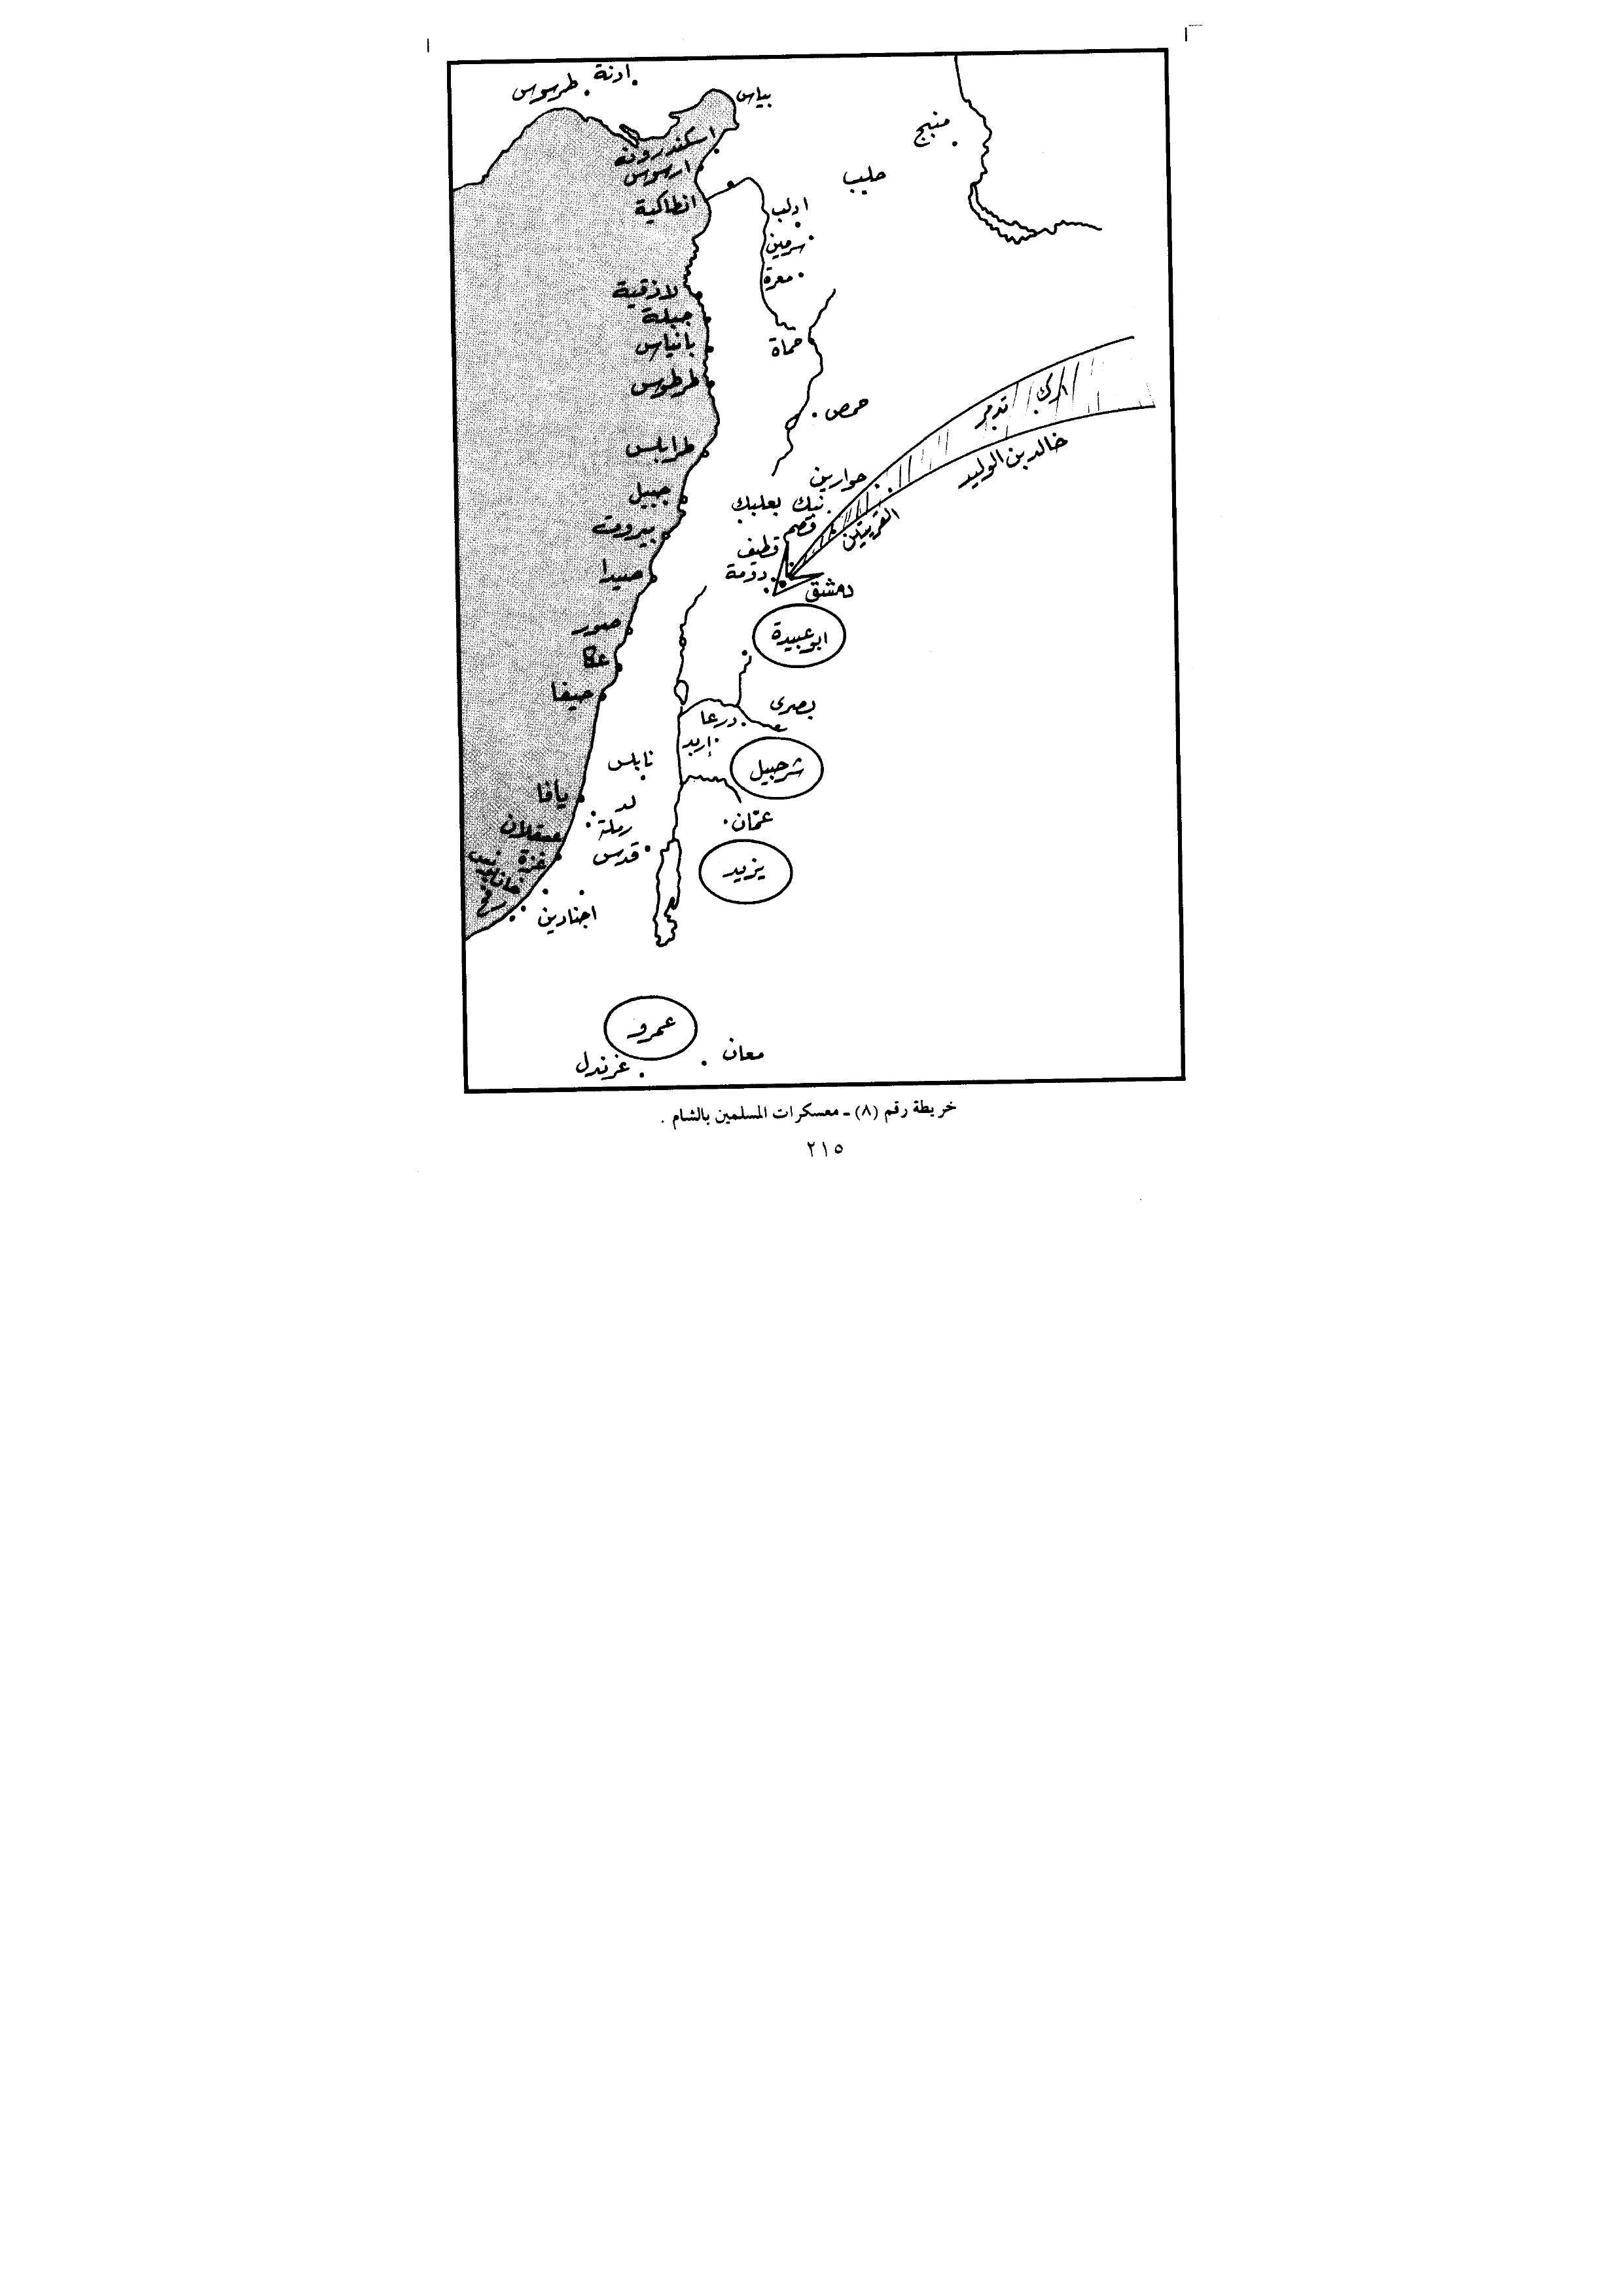 ادنة
طرسوس
بياس
منبج
اسكندرونه
ارسوس
حلب
انطاكية
ادلب
سرمين
معرة
لاذقية
جبلة
بانياس
حماة
طرطوس
ارك
تدمر
حمص
خالد بن الوليد
طرابلس
حوارين
جبيل
نبك بعلبك
قصم
القريتين
بيروت
قطيف
صيدا
دومة
دمشق
صور
ابو عبيدة
عكا
حيفا
بصرى
درعا
إربد
نابلس
شرحبيل
يافا
لد
رملة
عمّان
عسقلان
قدس
غزة
يزيد
رفح
اجنادين
عمرو
معان
غرندل
خريطة رقم (٨) ـ معسكرات المسلمين بالشام .
٢١٥